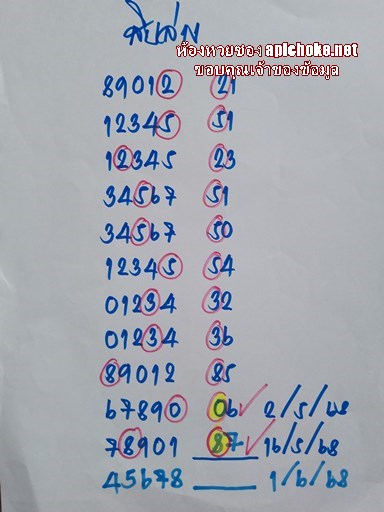 สิบล่าง
ห้องหวยซอง apichoke.net
ขอบคุณเจ้าของข้อมูล
89012 21
12345 51
12345 23
34567 51
34567 50
12345 54
01234 32
01234 36
89012 85
67890 06 ✓ 2/5/68
78901 87 ✓ 16/5/68
45678 ____ 1/6/68